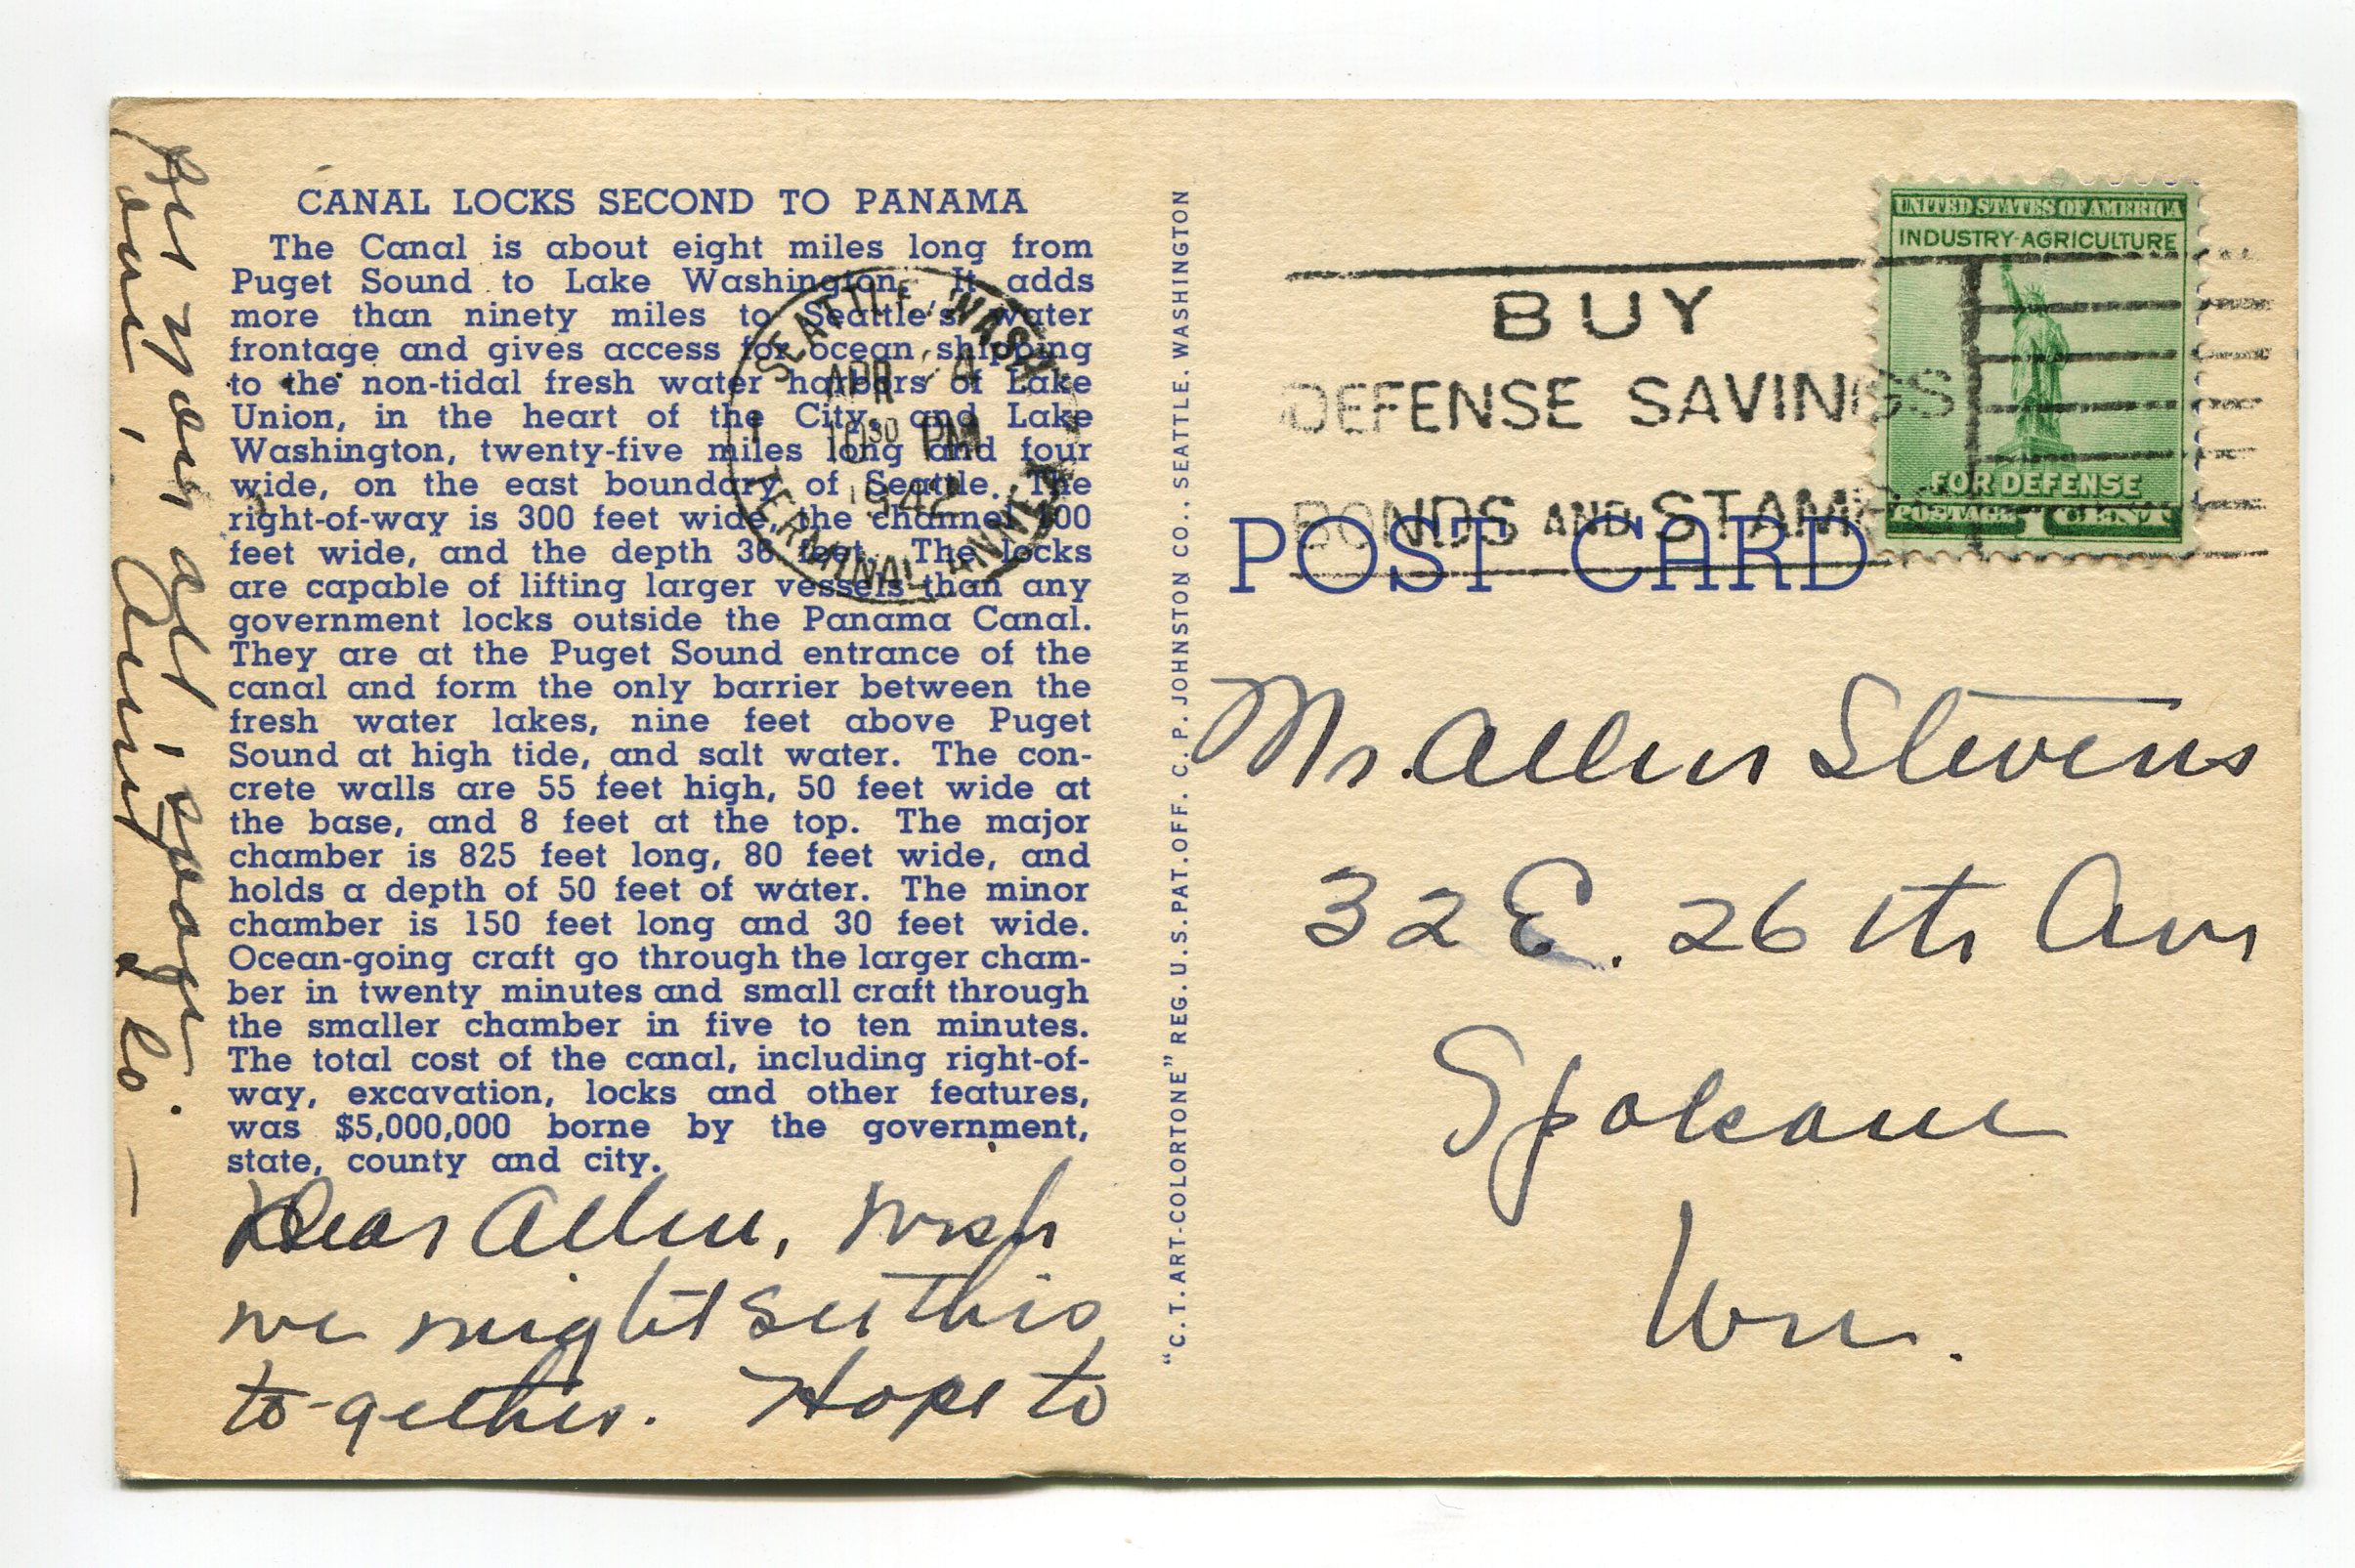 CANAL LOCKS SECOND TO PANAMA
The Canal is about eight miles long from
Puget Sound to Lake Washington. It adds
more than ninety miles to Seattle's water
frontage and gives access for ocean shipping
to the non-tidal fresh water harbors of Lake
Union, in the heart of the City, and Lake
Washington, twenty-five miles long and four
wide, on the east boundary of Seattle. The
right-of-way is 300 feet wide, the channel 100
feet wide, and the depth 36 feet. The locks
are capable of lifting larger vessels than any
government locks outside the Panama Canal.
They are at the Puget Sound entrance of the
canal and form the only barrier between the
fresh water lakes, nine feet above Puget
Sound at high tide, and salt water. The con-
crete walls are 55 feet high, 50 feet wide at
the base, and 8 feet at the top. The major
chamber is 825 feet long, 80 feet wide, and
holds a depth of 50 feet of water. The minor
chamber is 150 feet long and 30 feet wide.
Ocean-going craft go through the larger cham-
ber in twenty minutes and small craft through
the smaller chamber in five to ten minutes.
The total cost of the canal, including right-of-
way, excavation, locks and other features,
was $5,000,000 borne by the government,
state, county and city.
Dear Allen, Wish
we might see this
to-gether. Hope to
see you all, soon.
Love, Aunty Lo.
SEATTLE, WASH.
APR 4
10 30 PM
1942
TERMINAL ANNEX
"C. T. ART-COLORTONE" REG. U.S. PAT. OFF. C. P. JOHNSTON CO., SEATTLE, WASHINGTON
BUY
DEFENSE SAVINGS
BONDS AND STAMPS
UNITED STATES OF AMERICA
INDUSTRY-AGRICULTURE
FOR DEFENSE
POSTAGE 1 CENT
POST CARD
Mr. Allen Stevens
32 E. 26th Ave
Spokane
Wn.